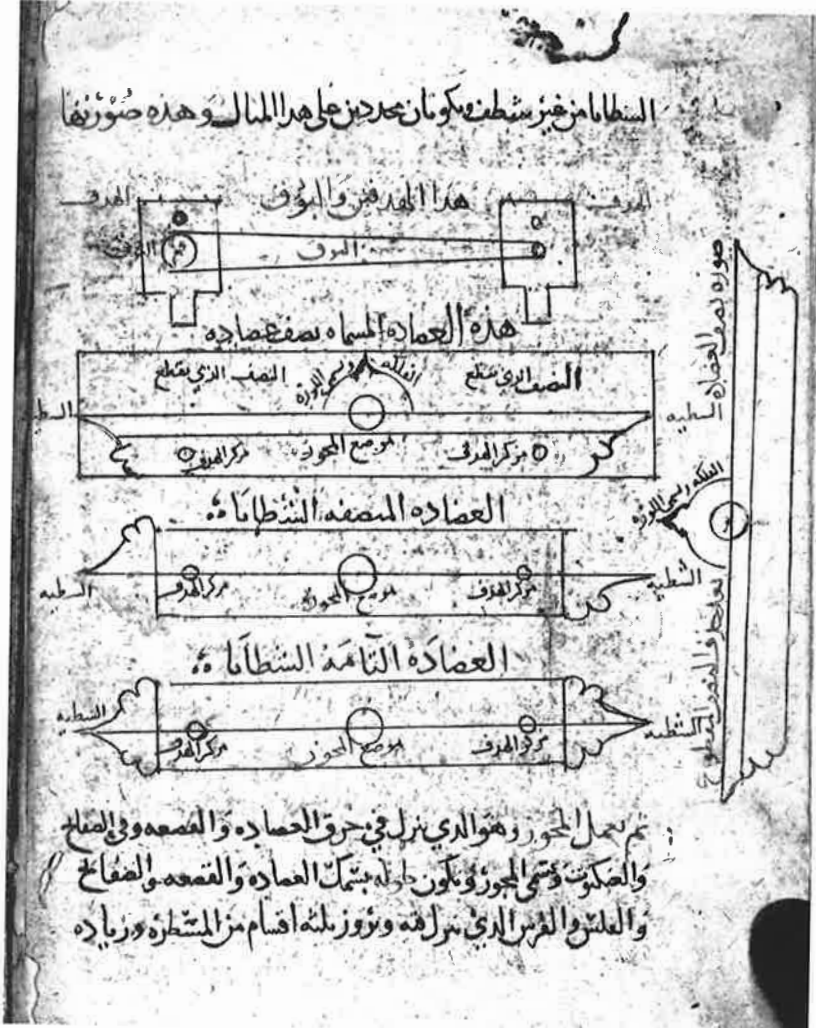 الشظايا من غير شطف ويكونان محددين على هذا المثال وهذه صورتها
الهدف هذا الهدفين والبوق الهدف
البوق
هذه العضاده المسماه نصف عضاده
النصف الذي يقطع الفلكه وتسمى اللوزة النصف الذي يقطع
الشظيه
مركز الهدف موضع المحور مركز الهدف
العضاده المنصفه الشظايا
الشظيه مركز الهدف موضع المحور مركز الهدف الشظيه
العضادة التامة الشظايا
الشظيه مركز الهدف موضع المحور مركز الهدف الشظيه
صورة نصف العضاده
الشظيه
الفلكه وتسمى اللوزة
ثم تعمل المحور وهو الذي ينزل في خرق العضاده والقصعه وفي الصفائح
والعنكبوت وتسمى المحور ويكون طوله بسمك العضاده والقصعه والصفائح
والفلس والفرس الذي ينزل فيه وبروز ثلثه اقسام من المسطره وزياده